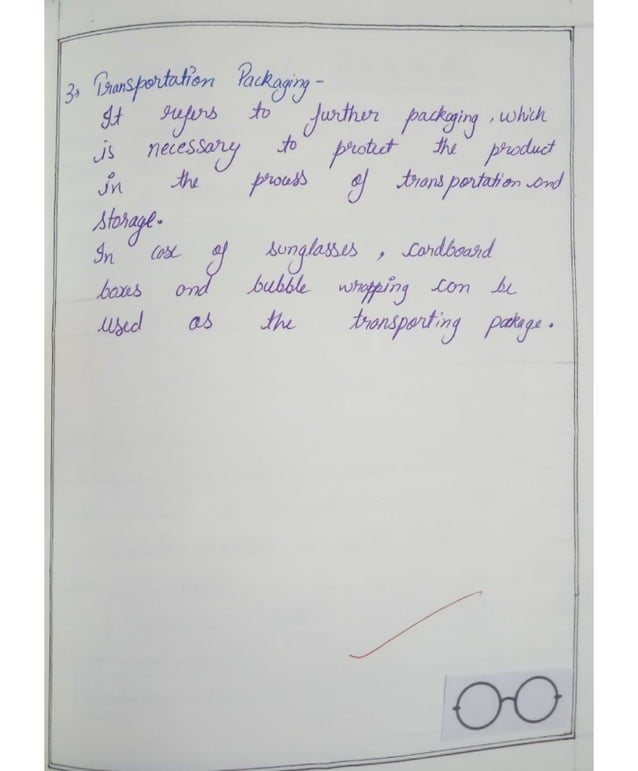 3. Transportation Packaging -
It refers to further packaging, which
is necessary to protect the product
in the process of transportation and
storage.
In case of sunglasses, cardboard
boxes and bubble wrapping can be
used as the transporting package.